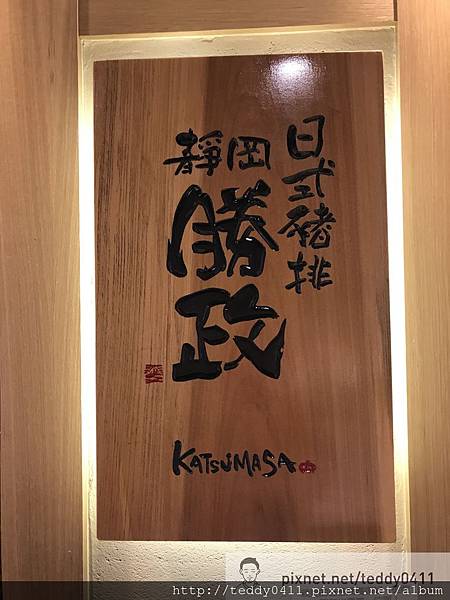 日式豬排
靜岡
勝政
KATSUMASA
pixnet.net/teddy0411
http://teddy0411.pixnet.net/album